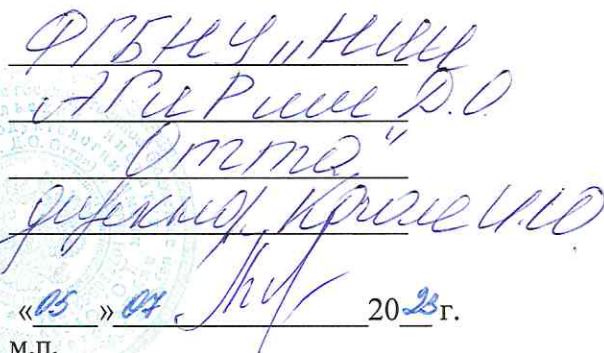 ФГБНУ „НИИ
АГиР им Д.О.
Отта"
директор Коган И.Ю.
«05» 07. 2023 г.
м.п.